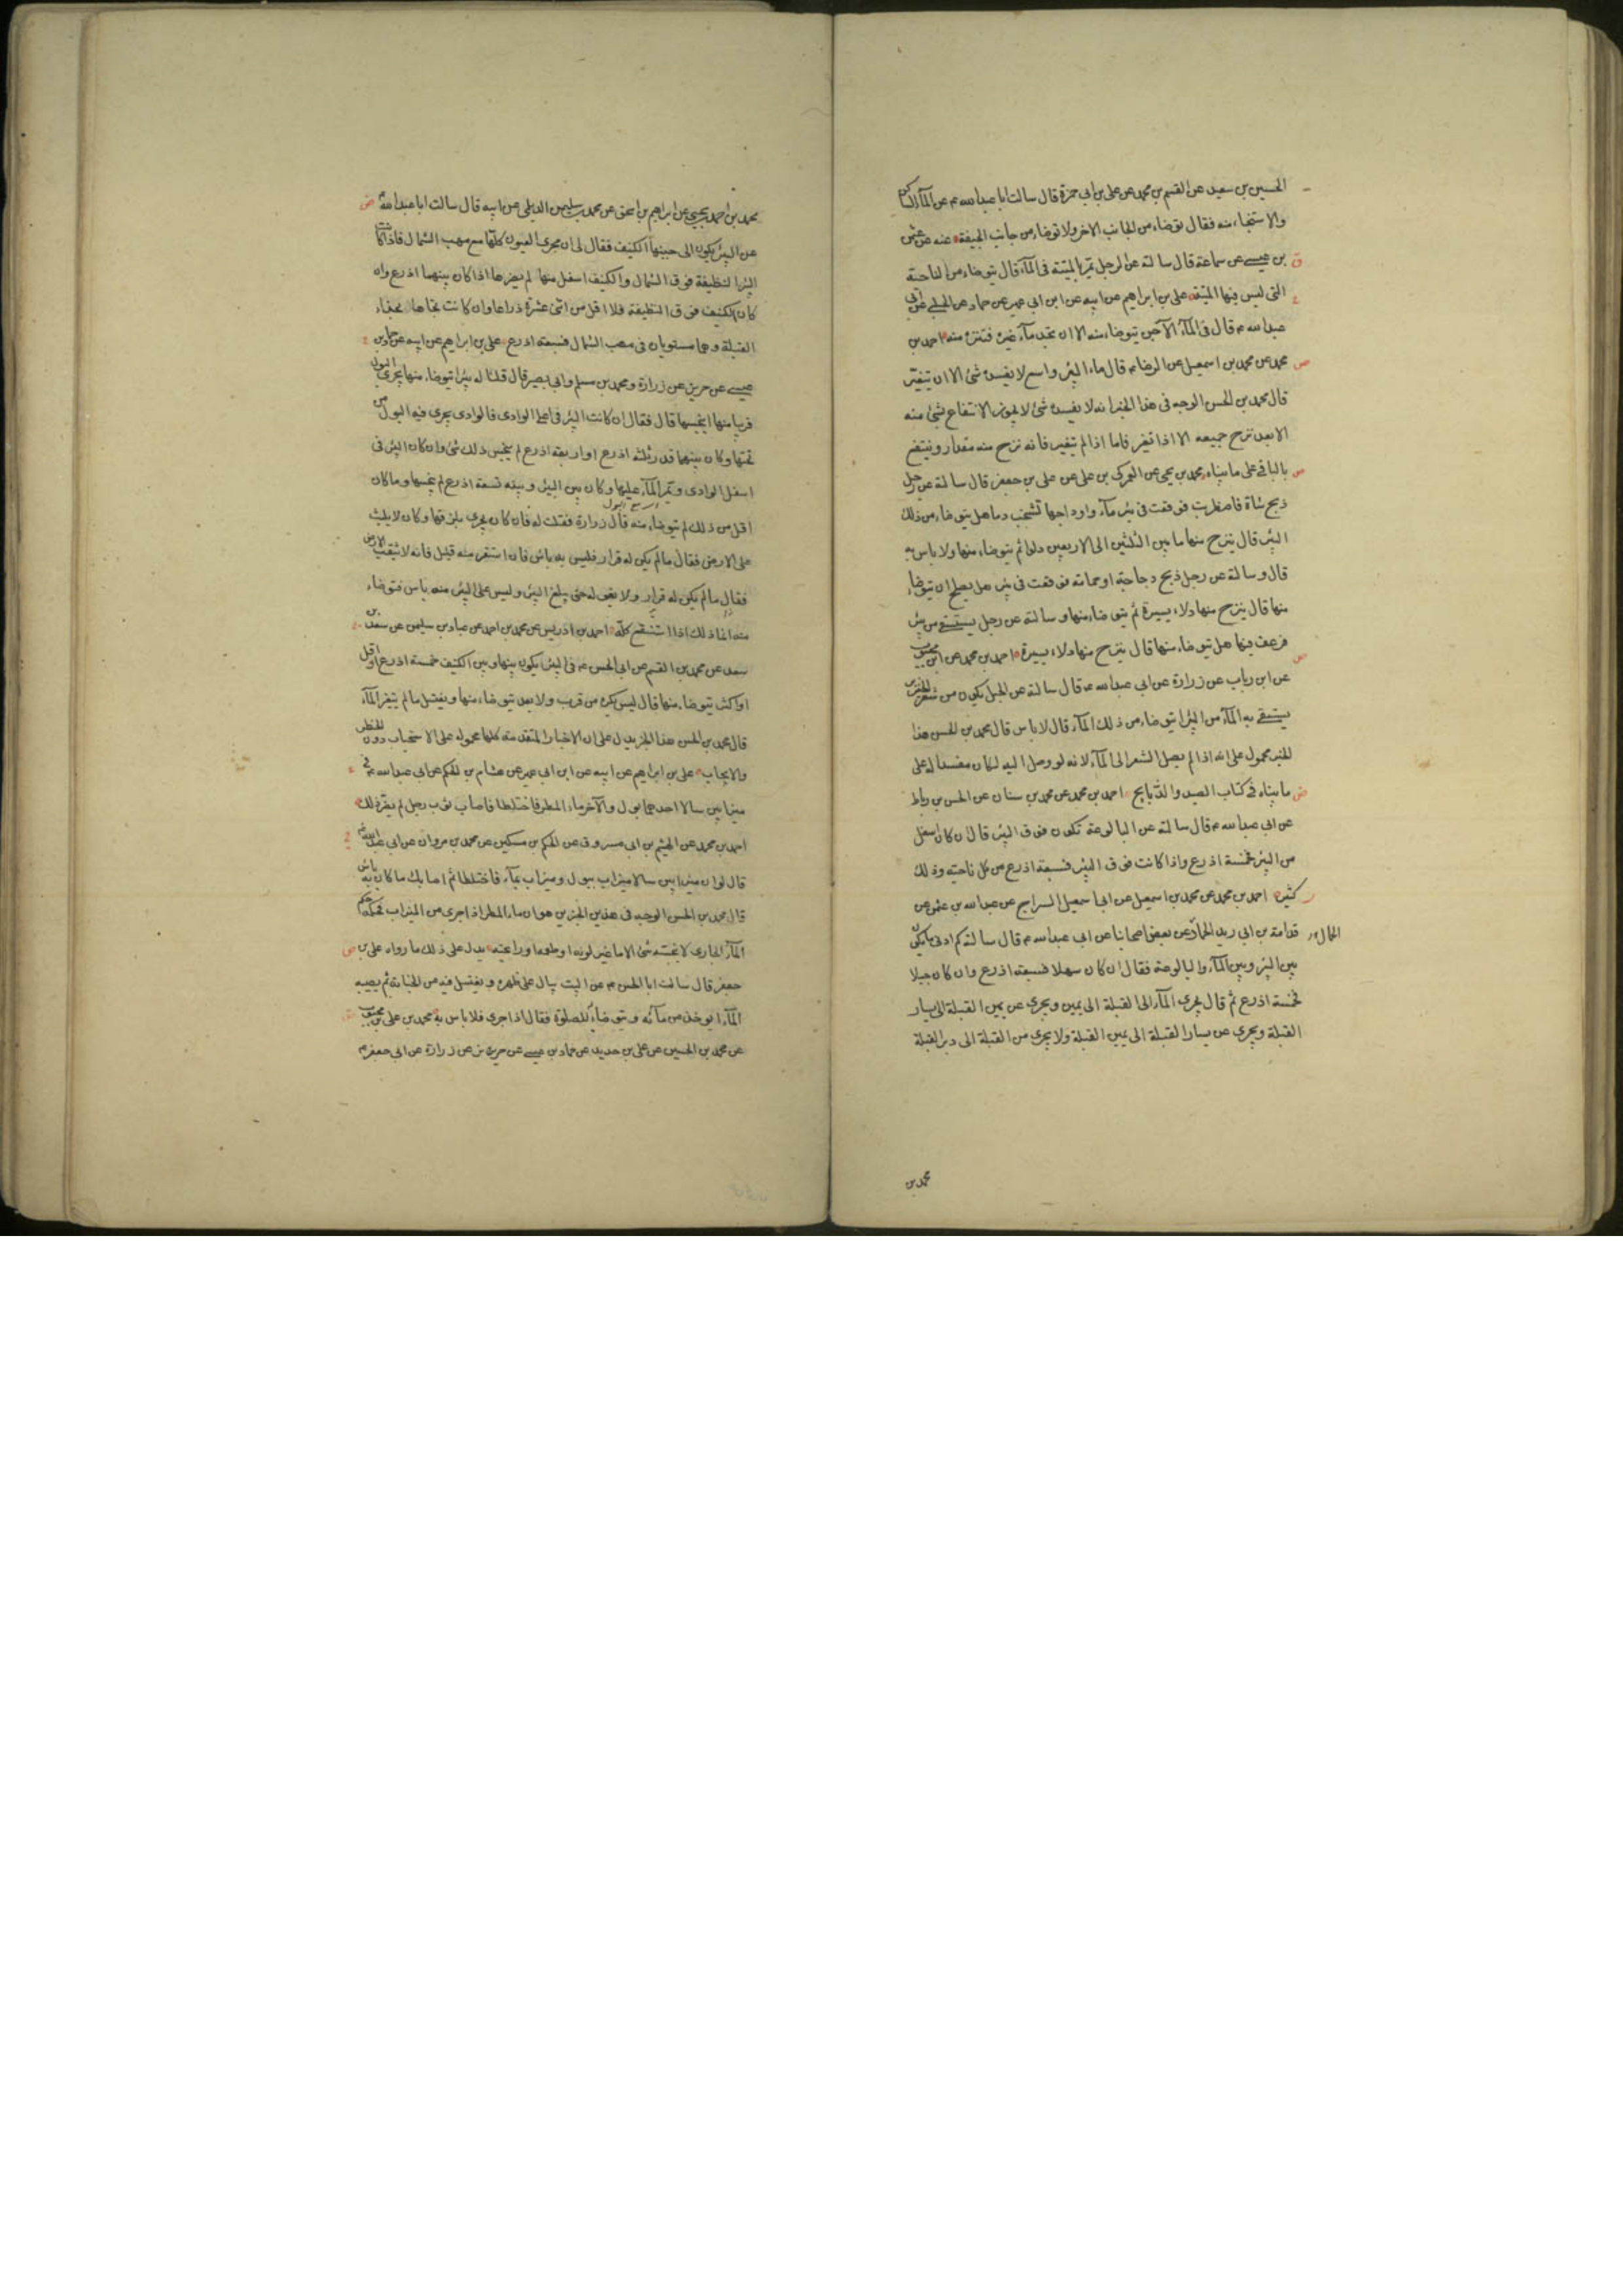 الحسين بن سعيد عن القسم بن محمد عن على بن ابى حمزة قال سالت ابا عبدالله ع عن المآء الساكن
والاستنجاء منه فقال توضاء من الجانب الاخر ولا توضاء من جانب الجيفة عنه عن عثمن
بن عيسى عن سماعة قال سالته عن الرجل يمر بالميتة فى المآء قال يتوضاء من الناحية
التى ليس فيها الميتة على بن ابراهيم عن ابيه عن ابن ابى عمير عن حماد عن الحلبى عن ابى
عبدالله ع قال فى المآء الآجن يتوضاء منه الا ان تجد مآء غيره فتنزه منه احمد بن
محمد عن محمد بن اسمعيل عن الرضا ع قال ماء البئر واسع لا يفسده شئ الا ان يتغير
قال محمد بن الحسن الوجه فى هذا الخبر انه لا يفسده شئ لا يجوز الانتفاع بشئ منه
الا بعد نزح جميعه الا اذا تغير فاما اذا لم يتغير فانه نزح منه مقدار وينتفع
بالباقى على ما بيناه محمد بن يحيى عن العمركى بن على عن على بن جعفر قال سالته عن رجل
ذبح شاة فاضطربت فوقعت فى بئر مآء واوداجها تشخب دما هل يتوضاء من ذلك
البئر قال ينزح منها ما بين الثلثين الى الاربعين دلوا ثم يتوضاء منها ولا باس به
قال وسالته عن رجل ذبح دجاجة او حمامة فوقعت فى بئر هل يصلح ان يتوضاء
منها قال ينزح منها دلاء يسيرة ثم يتوضاء منها وسالته عن رجل يستسقى من بئر
فرعف فيها هل يتوضاء منها قال ينزح منها دلاء يسيرة احمد بن محمد عن ابن محبوب
عن ابن رياب عن زرارة عن ابى عبدالله ع قال سالته عن الحبل يكون من شعر الخنزير
يستسقى به المآء من البئر ايتوضاء من ذلك المآء قال لا باس قال محمد بن الحسن هذا
الخبر محمول على انه اذا لم يصل الشعر الى المآء لانه لو وصل اليه لكان مفسدا له على
ما بيناه فى كتاب الصيد والذبايح احمد بن محمد عن محمد بن سنان عن الحسن بن رباط
عن ابى عبدالله ع قال سالته عن البالوعة تكون فوق البئر قال ان كان اسفل
من البئر فخمسة اذرع واذا كانت فوق البئر فسبعة اذرع من كل ناحية وذلك
كثير احمد بن محمد عن محمد بن اسمعيل عن ابى اسمعيل السراج عن عبدالله بن عثمن عن
قدامة بن ابى زيد الحمار عن بعض اصحابنا عن ابى عبدالله ع قال سالته كم ادنى ما يكون
الجمال
بين البئر وبين المآء والبالوعة فقال ان كان سهلا فسبعة اذرع وان كان جبلا
فخمسة اذرع ثم قال يجرى المآء الى القبلة الى يمين ويجرى عن يمين القبلة الى يسار
القبلة ويجرى عن يسار القبلة الى يمين القبلة ولا يجرى من القبلة الى دبر القبلة
محمد بن
محمد بن احمد بن يحيى عن ابراهيم بن اسحق عن محمد بن سليمن الديلمى عن ابيه قال سالت ابا عبدالله ع
عن البئر يكون الى جنبها الكنيف فقال لى ان مجرى العيون كلها مع مهب الشمال فاذا كانت
البئر النظيفة فوق الشمال والكنيف اسفل منها لم يضرها اذا كان بينهما اذرع وان
كان الكنيف فوق النظيفة فلا اقل من اثنى عشرة ذراعا وان كانت تجاها بحذاء
القبلة وهما مستويان فى مهب الشمال فسبعة اذرع على بن ابراهيم عن ابيه عن حماد بن
عيسى عن حريز عن زرارة ومحمد بن مسلم وابى بصير قال قلنا له بئر يتوضاء منها يجرى البول
قريبا منها اينجسها قال فقال ان كانت البئر فى اعلا الوادى فالوادى يجرى فيه البول من
تحتها وكان بينهما قدر ثلثة اذرع او اربعة اذرع لم ينجس ذلك شئ وان كان البئر فى
اسفل الوادى ويمر المآء عليها وكان بين البئر وبينه تسعة اذرع لم ينجسها وما كان
اقل من ذلك لم يتوضاء منه قال زرارة فقلت له فان كان يجرى بلزقها وكان لا يلبث
على الارض فقال ما لم يكن له قرار فليس به باس فان استقر منه قليل فانه لا يثقب الارض
فقال ما لم يكن له قرار ولا يغوله حتى يبلغ البئر وليس على البئر منه باس فتوضاء
منه انما ذلك اذا استنقع كله احمد بن ادريس عن محمد بن احمد عن عباد بن سليمن عن سعد بن
سعد عن محمد بن القسم عن ابى الحسن ع فى البئر يكون بينها وبين الكنيف خمسة اذرع او اقل
او اكثر يتوضاء منها قال ليس يكره من قرب ولا بعد يتوضاء منها ويغتسل ما لم يتغير المآء
قال محمد بن الحسن هذا الخبر يدل على ان الاخبار المتقدمة كلها محمولة على الاستحباب دون الحظر
والايجاب على بن ابراهيم عن ابيه عن ابن ابى عمير عن هشام بن الحكم عن ابى عبدالله ع فى
ميزابين سالا احدهما بول والآخر ماء المطر فاختلطا فاصاب ثوب رجل لم يضره ذلك
احمد بن محمد عن الهيثم بن ابى مسروق عن الحكم بن مسكين عن محمد بن مروان عن ابى عبدالله ع
قال لو ان ميزابين سالا ميزاب ببول وميزاب بمآء فاختلطا ثم اصابك ما كان به باس
قال محمد بن الحسن الوجه فى هذين الخبرين هو ان ماء المطر اذا جرى من الميزاب فحكمه حكم
المآء الجارى لا ينجسه شئ الا ما غير لونه او طعمه او رايحته يدل على ذلك ما رواه على بن
جعفر قال سالت ابا الحسن ع عن البيت يبال على ظهره ويغتسل فيه من الجنابة ثم يصيبه
المآء ايوخذ من مآئه ويتوضاء للصلوة فقال اذا جرى فلا باس به محمد بن على بن محبوب
عن محمد بن الحسين عن على بن حديد عن حماد بن عيسى عن حريز عن زرارة عن ابى جعفر ع